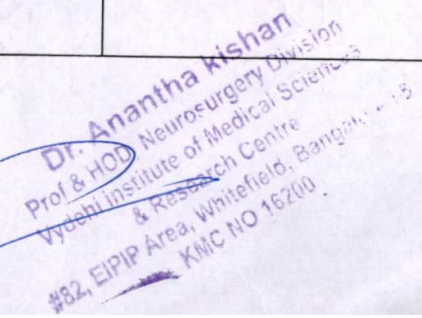 Dr. Anantha kishan
Prof & HOD Neurosurgery Division
Vydehi institute of Medical Sciences
& Research Centre
#82, EIPIP Area, Whitefield,
KMC NO 16200